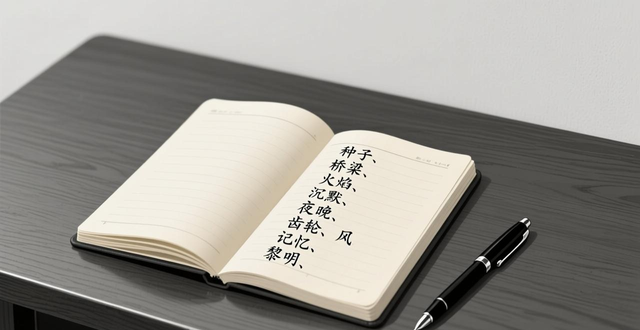 种子、
桥梁、
火焰、
沉默、
夜晚、
齿轮、风
记忆、
黎明、